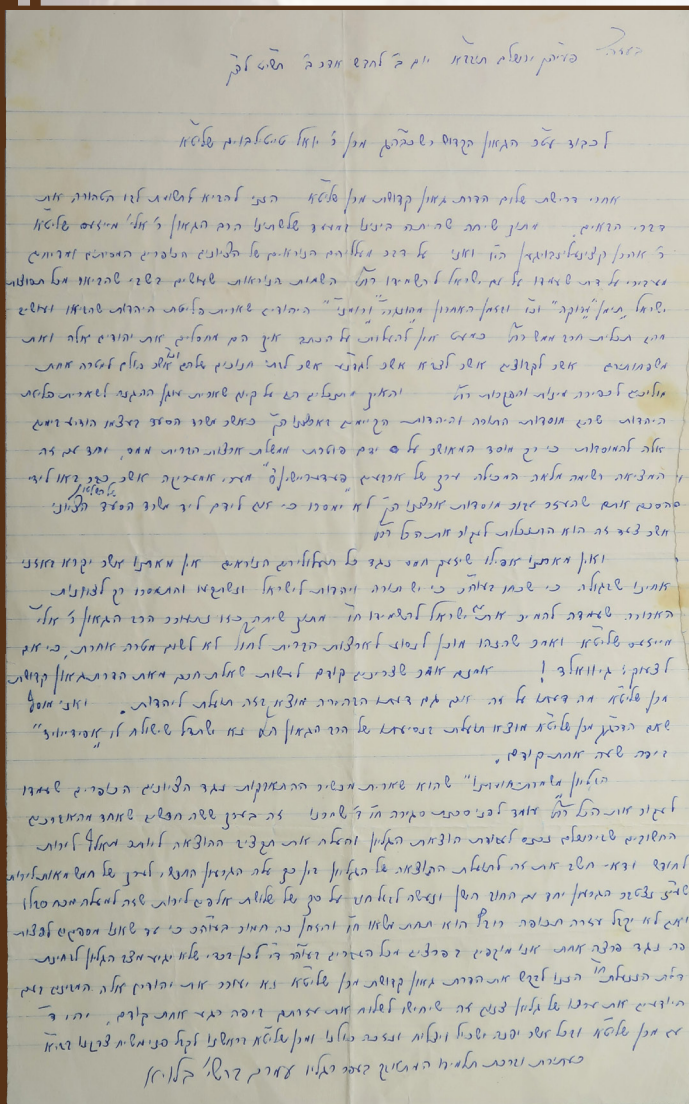 בעזה"י
פעיה"ק ירושלם תובב"א יום ב' לחדש אדר ב' תשי"ט לפ"ק
לכבוד עט"ר הגאון הקדוש רשכבה"ג מרן ר' יואל טייטלבוים שליט"א
אחרי דרישת שלום הדרת גאון קדושת מרן שליט"א הנני להביא לתשומת לבו הטהורה את
דברי הבאים. מתוך שיחה שהיתה בינינו במעמד שלשתינו הרב הגאון ר' אלי' שליט"א
ר' אהרן קצינעלינבויגען הי"ו ואני על דבר מעלליהם הנוראים של הציונים הכופרים
מעבירי על דת שעמדו על עם ישראל להשמידו רח"ל השמות הנוראות שעושים בשבי שהביאו מכל תפוצות
ישראל תימן "מרוקה" וכו' ובזמן האחרון "ורומני" היהודים שארית פליטת היהדות שהביאו ועושים
מהם תכלית חרב ממש רח"ל כמעט אין להעלות על הכתב איך הם מחלקים את יהודים אלה ואת
משפחותיהם אשר לקבוצים אשר לצבא אשר אשר לבתי חנוכים שלהם אשר כולם למטרה אחת
מוליכים לכפירה מינות והפקרות רח"ל והאיך מתנכלים הם על קיום שארית עוגן ההגנה לשארית פליטת
היהדות שהם מוסדות התורה והיהדות הקיימים בארצנו הק' כאשר משרד הסעד בעצמו הודיע בימים
אלה למוסדות כי רק מוסד המאושר על ידם פוטרת ממשלת ארצות הברית ממס, ויחד עם זה
המציאה רשימה מלאה המכילה ערך של ארבעים "פעדערישן'ס" מערי אמעריקה אשר כבר באו לידי
הסכם אתם שהעזר עבור מוסדות ארצנו הק' לא ימסרו כי אם לידם ליד משרד הסעד הציוני
אשר צעד זה הוא התנכלות לעקור את הכל רח"ל
ואין מאתנו אפילו שיזעק חמס נגד כל תעלוליהם הנוראים אין מאתנו אשר יקרא באזני
אחינו שבגולה כי שכחו בעוה"ר כי יש תורה ויהדות לישראל ונשתקעו והתמסרו רק לציונות
הארורה שעמדה להמיר את ישראל להשמידו ח"ו מתוך שיחה כזו נתעורר הרב הגאון ר' אלי'
שליט"א ואמר שהנהו מוכן לנסוע לארצות הברית לחול לא לשום מטרה אחרת, כי אם
לצעוק: גיוואלד! אמנם אמר שצריכים קודם לעשות שאלת חכם מאת הדרת גאון קדושת
מרן שליט"א מה דעתו על זה אם גם דעתו הבהירה מוצא בזה תועלת ליהדות. ואני מוסיף
שאם הדר"ג מרן שליט"א מוצא תועלת בנסיעתו של הרב הגאון הנ"ל נא ישתדל שישלח לו "אפידייוויד"
ביפה שעה אחת קודם.
הגליון "משמרת חומתנו" שהוא שארית מכשיר ההתאבקות נגד הציונים הכופרים שעמדו
לעקור את הכל רח"ל עומד לפני סכנת סגירה ח"ו ה' ישמרנו זה בערך ששה חדשים שאחד מהאברכים
החשובים שבירושלם נכנס לעבודת הוצאת הגליון והעלה את תקציב ההוצאה ליותר מאלף לירות
לחודש ודאי חשב את זה לתועלת התוצאה של הגליון אין כן עלה הגרעון החדשי לערך של חמש מאות לירות
שעי"ז נצטבר הגרעון יחד עם החוב הישן ונעשה לבעל חוב על סך של שלושת אלפים לירות שזה למעלה מכח סבלו
ואם לא יקבל עזרה תכופה הוא תחת משאו ח"ו והזמן כה חמור בעוה"ר כי עד שאנו מספיקים לפצות
פה נגד פרצה אחת אנו מוקפים בפרצים מכל העברים בעוה"ר ה' לכן בכדי שלא יגיע מצב הגליון לבחינת
דלת הננעלת ח"ו הננו לבקש את הדרת גאון קדושת מרן שליט"א נא יעורר את יהודים אלה המבינים בעם
היודעים את ערכו של גליון כזה שיחישו לשלוח את עזרתם ביפה רגע אחת קודם, ויהי ד'
עם מרן שליט"א ובכל אשר יפנה ישכיל ויצליח ונזכה כולנו ומרן שליט"א בראשנו לקבל פני משיח צדקנו בב"א
כעתירת וברכת תלמידו המתאבק בעפר רגליו עמרם ברש"י בלויא